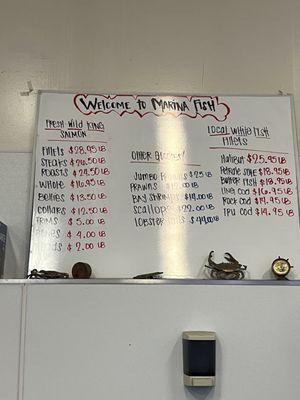 Welcome to Marina Fish!
Fresh Wild King
Salmon
Fillets $28.95 LB
Steaks $26.50 LB
Roasts $24.50 LB
Whole $16.95 LB
Bellies $13.50 LB
Collars $12.50 LB
Trims $5.00 LB
$4.00 LB
$2.00 LB
Other
Jumbo Prawns $25 LB
Prawns LB
Bay Shrimp $19.00 LB
Scallops $22.00 LB
Lobster LB
Local White Fish
Fillets
Halibut $25.95 LB
Petrale Sole $18.95
Butter Fish $18.95
Ling Cod $16.95 LB
Rock Cod $14.95 LB
Tru Cod $14.95 LB